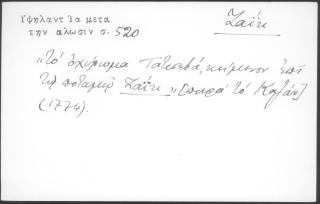 Ὑψηλαντ Τα μετα
την αλωσιν σ. 520
Ζαΐκ
"τὸ ὀχύρωμα Τατισβά, κείμενον ἐπὶ
τῷ ποταμῷ Ζαΐκ," [παρὰ τὸ Καζάν]
(1774).